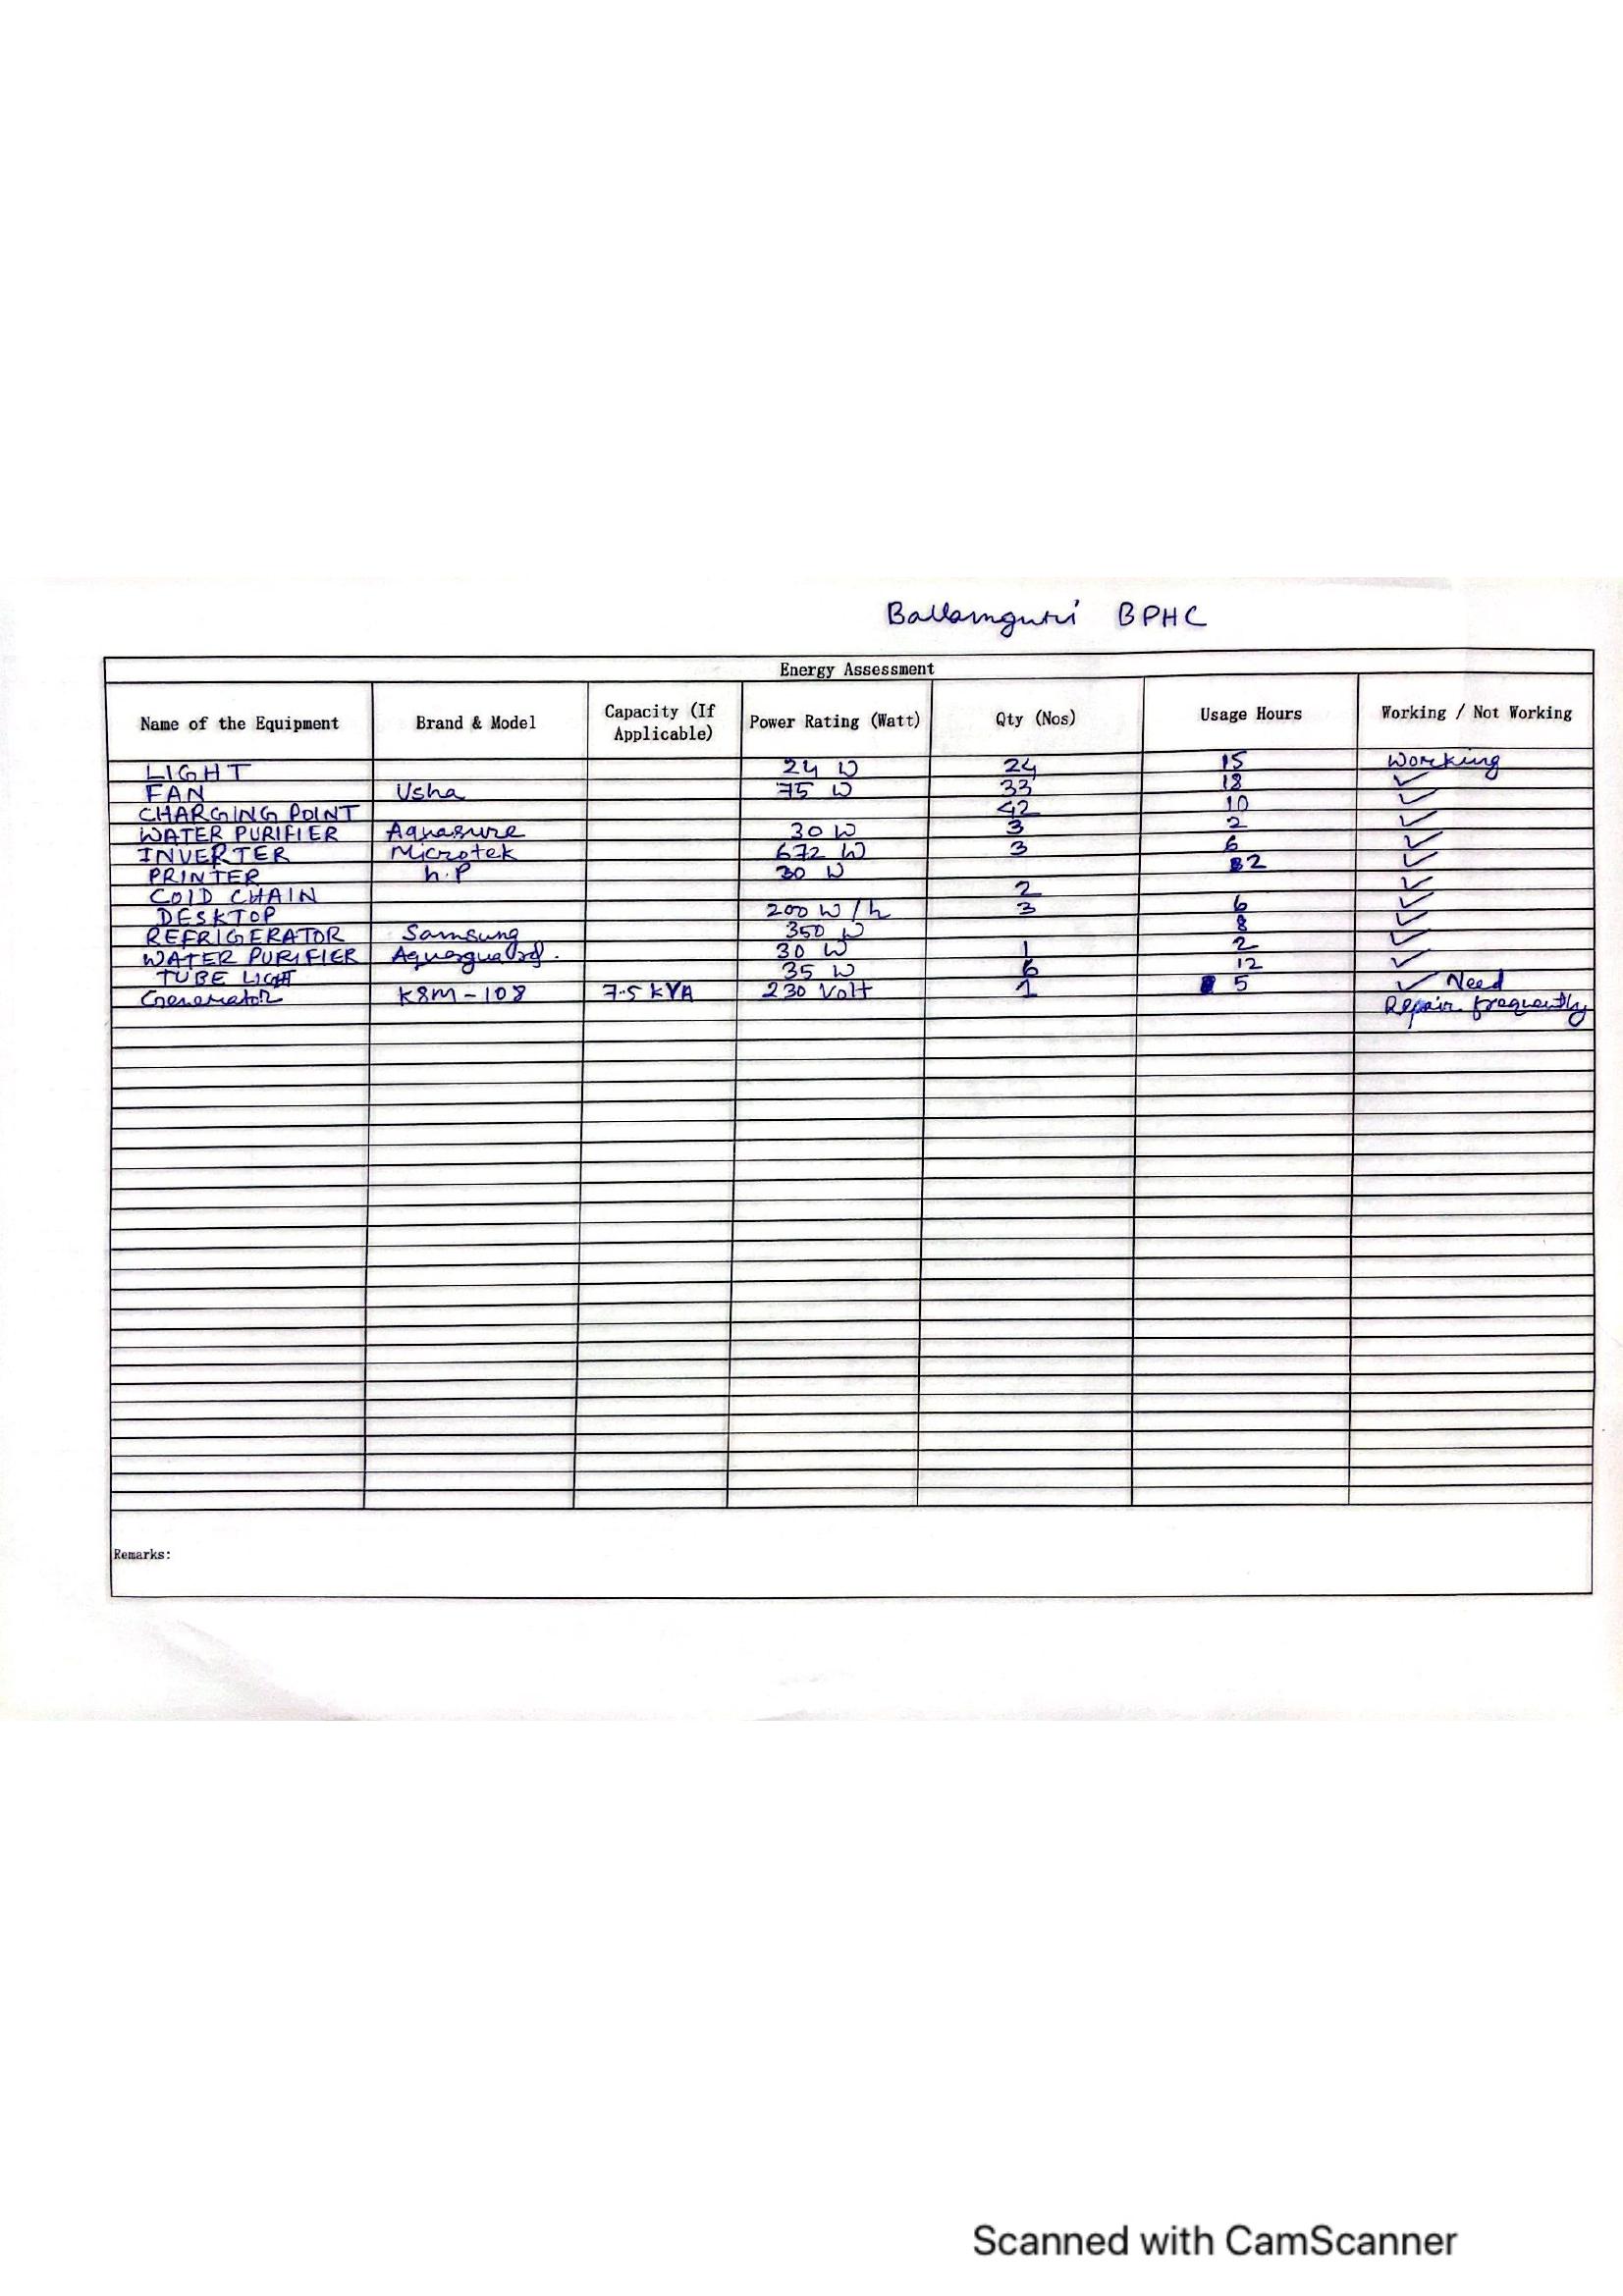 Ballamguri BPHC
Energy Assessment
Name of the Equipment Brand & Model Capacity (If Applicable) Power Rating (Watt) Qty (Nos) Usage Hours Working / Not Working
LIGHT 24 W 24 15 Working
FAN Usha 75 W 33 18 ✓
CHARGING POINT 42 10 ✓
WATER PURIFIER Aquasure 30 W 3 2 ✓
INVERTER Microtek 672 W 3 6 ✓
PRINTER h.P 30 W 2 ✓
COLD CHAIN 2 ✓
DESKTOP 200 W/h 3 6 ✓
REFRIGERATOR Samsung 350 W 8 ✓
WATER PURIFIER Aquaguard. 30 W 1 2 ✓
TUBE LIGHT 35 W 6 12 ✓
Generator K8M-108 7.5 KVA 230 Volt 1 5 ✓ Need
Repair frequently
Remarks:
Scanned with CamScanner